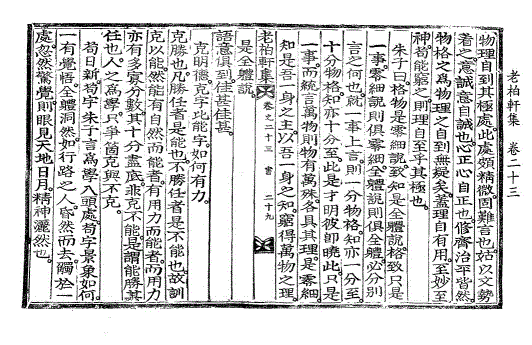 老柏軒集 卷二十三
物理自到其極處。此處頗精微。固難言也。姑以文勢
看之。意誠意自誠也。心正心自正也。修齊治平皆然。
物格之爲物理之自到無疑矣。蓋理自有用。至妙至
神。苟能窮之則理自至乎其極也。
朱子曰格物是零細說。致知是全體說。格致只是
一事。零細說則俱零細。全體說則俱全體。必分別
言之何也。就一事上言。則一分物格。知亦一分至。
十分物格。知亦十分至。此是才明彼卽曉。此只是
一事。而統言萬物。則物有萬殊。各具其理。是零細
知是吾一身之主。以吾一身之知。窮得萬物之理。
老柏軒集 卷之二十三 書 二十九
是全體說。
語意俱到。佳甚佳甚。
克明德。克字比能字如何有力。
克勝也。凡勝任者是能也。不勝任者是不能也。故訓
克以能。然能有自然而能者。有用力而能者。而用力
亦有多寡分數。其十分盡底。非克不能。是謂能勝其
任也。人之爲學。只爭箇克與不克。
苟日新。苟字朱子言爲學入頭處。苟字景象如何。
一有覺悟。全體洞然。如行路之人。昏然而去。觸於一
處。忽然驚覺。則眼見天地日月。精神灑然也。